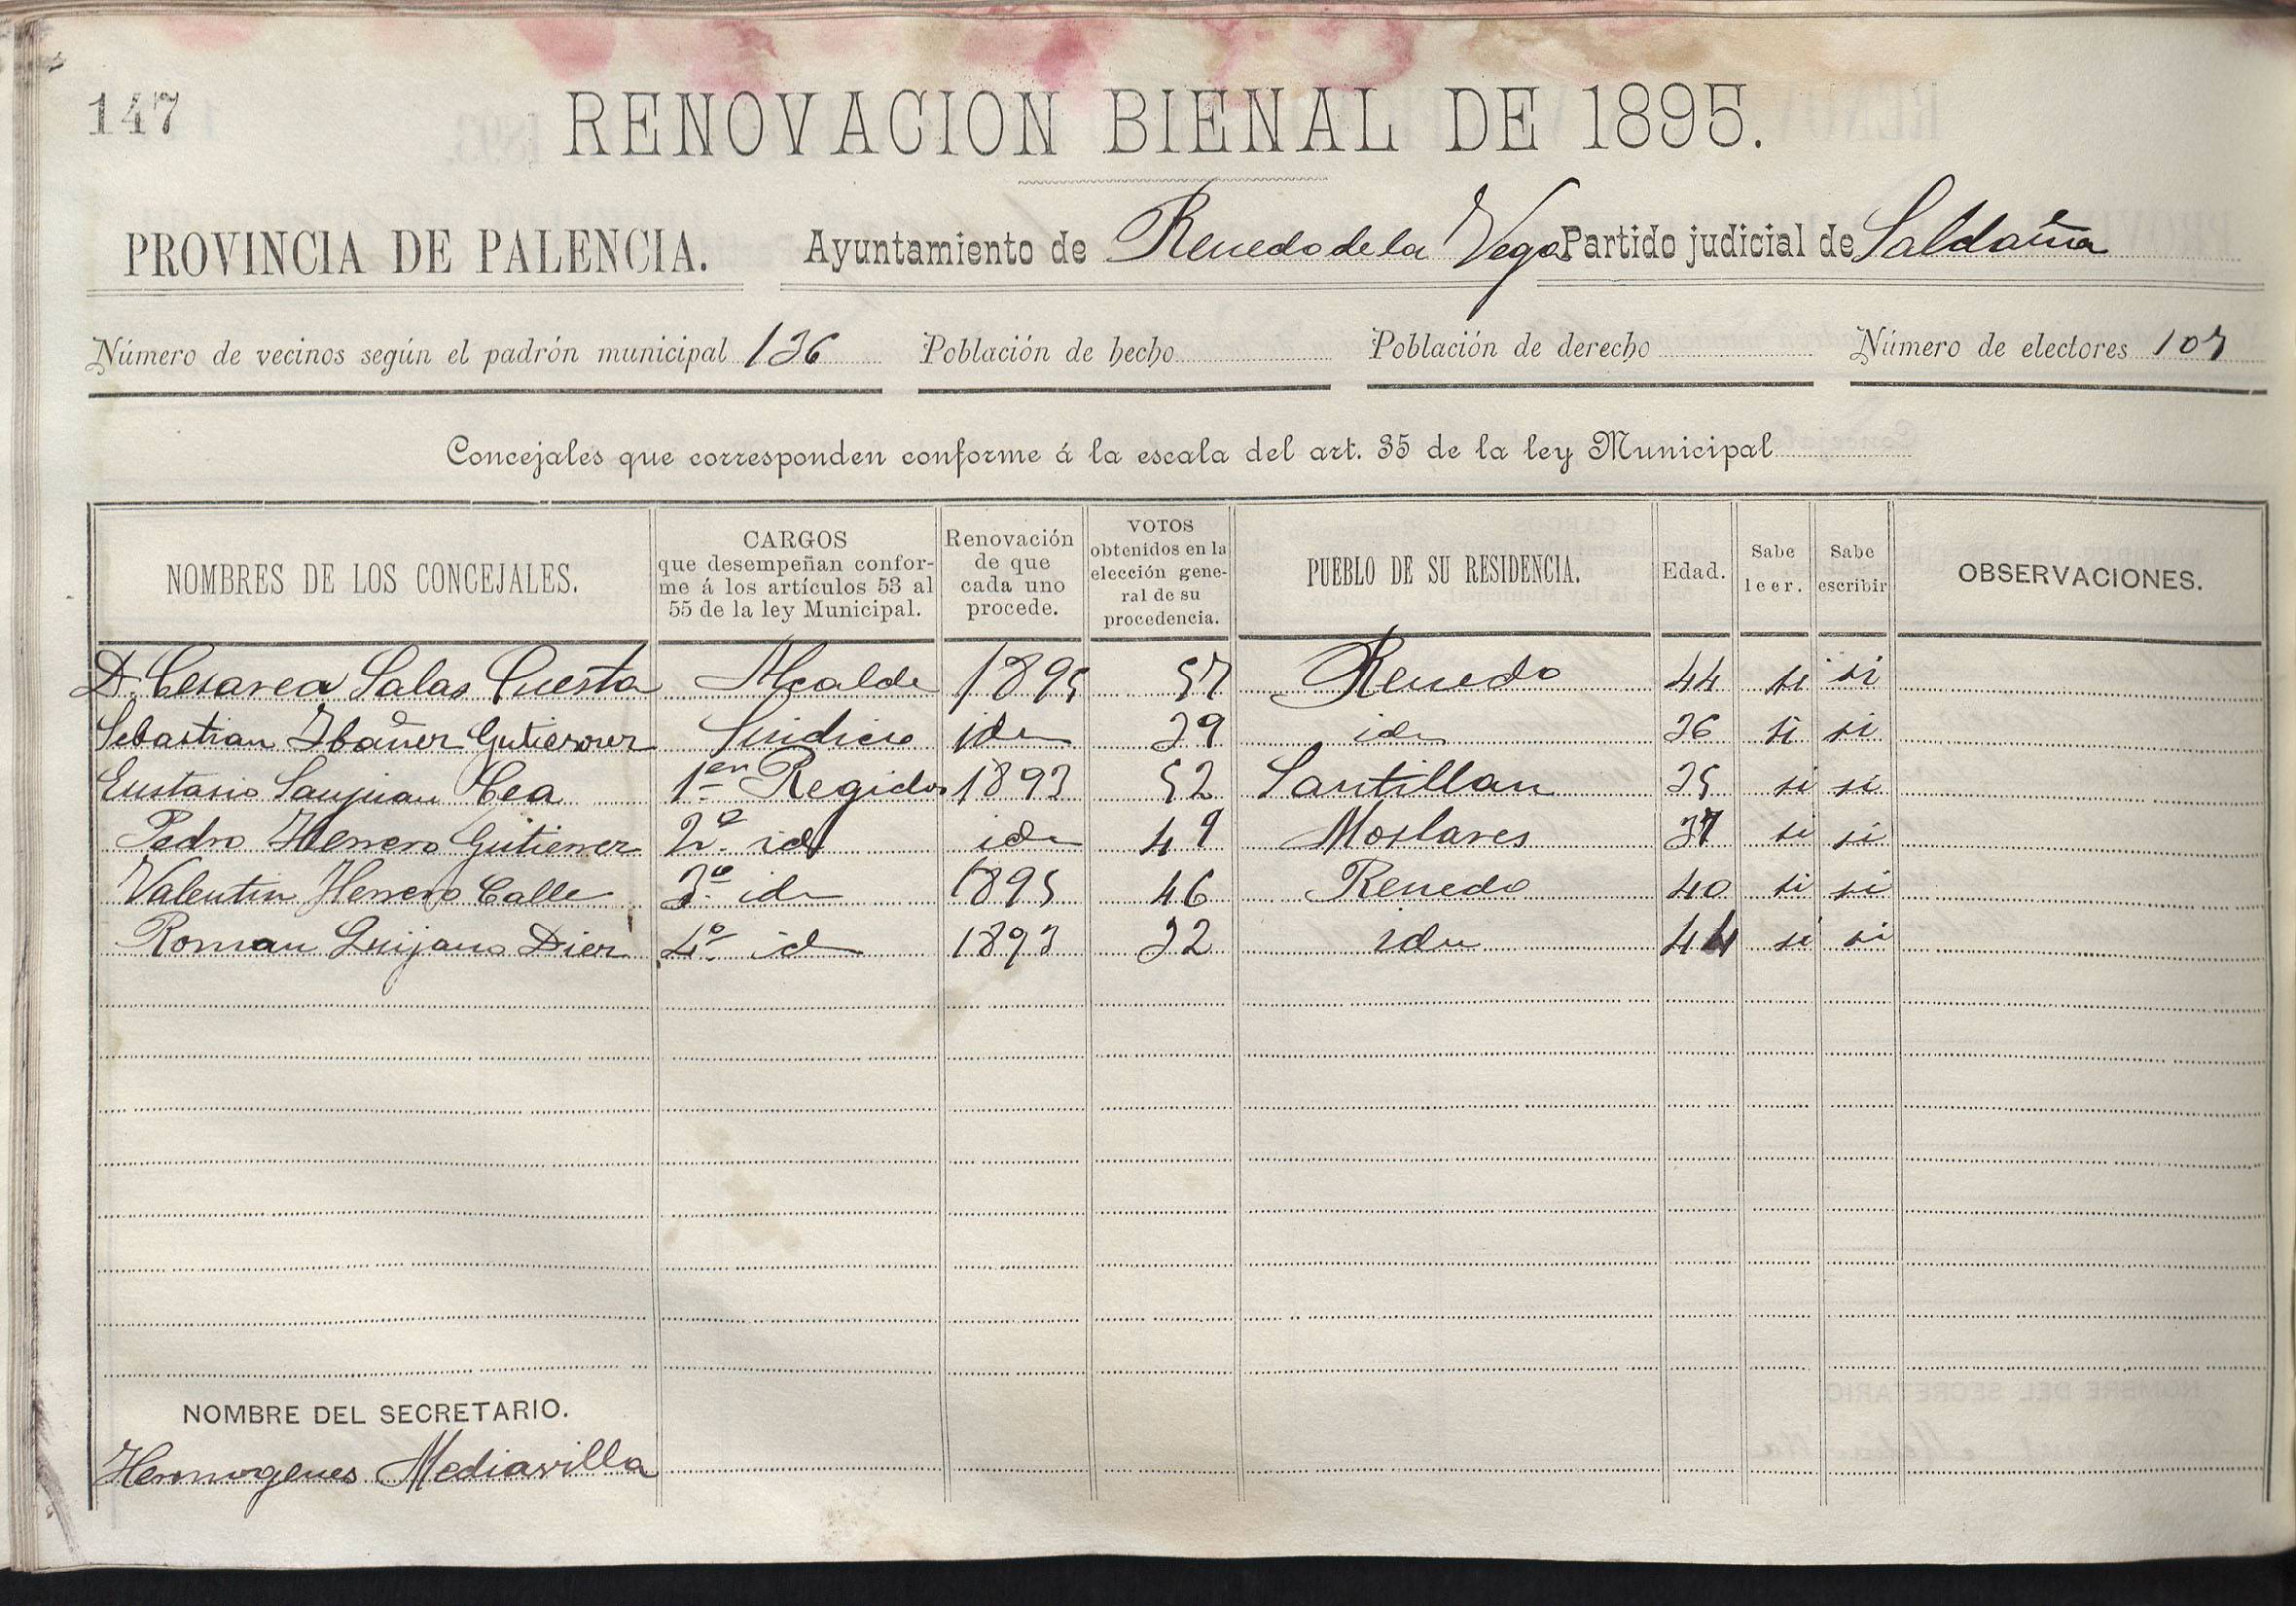 147
RENOVACION BIENAL DE 1895.
PROVINCIA DE PALENCIA. Ayuntamiento de Renedo de la Vega Partido judicial de Saldaña
Número de vecinos según el padrón municipal 136 Población de hecho Población de derecho Número de electores 107
Concejales que corresponden conforme á la escala del art. 35 de la ley Municipal
NOMBRES DE LOS CONCEJALES. CARGOS que desempeñan conforme á los artículos 53 al 55 de la ley Municipal. Renovación de que cada uno procede. VOTOS obtenidos en la elección general de su procedencia. PUEBLO DE SU RESIDENCIA. Edad. Sabe leer. Sabe escribir OBSERVACIONES.
D. Cesarea Salas Cuesta Alcalde 1895 57 Renedo 44 si si
Sebastian Ibañez Gutierrez Sindico idn 39 idn 36 si si
Eustasio Sanjuan Cea 1er Regidor 1893 52 Santillan 35 si si
Pedro Herrero Gutierrez 2º id idn 49 Moslares 37 si si
Valentin Herrero Calle 3º idn 1895 46 Renedo 40 si si
Roman Quijano Diez 4º id 1893 32 idn 44 si si
NOMBRE DEL SECRETARIO.
Hermogenes Mediavilla